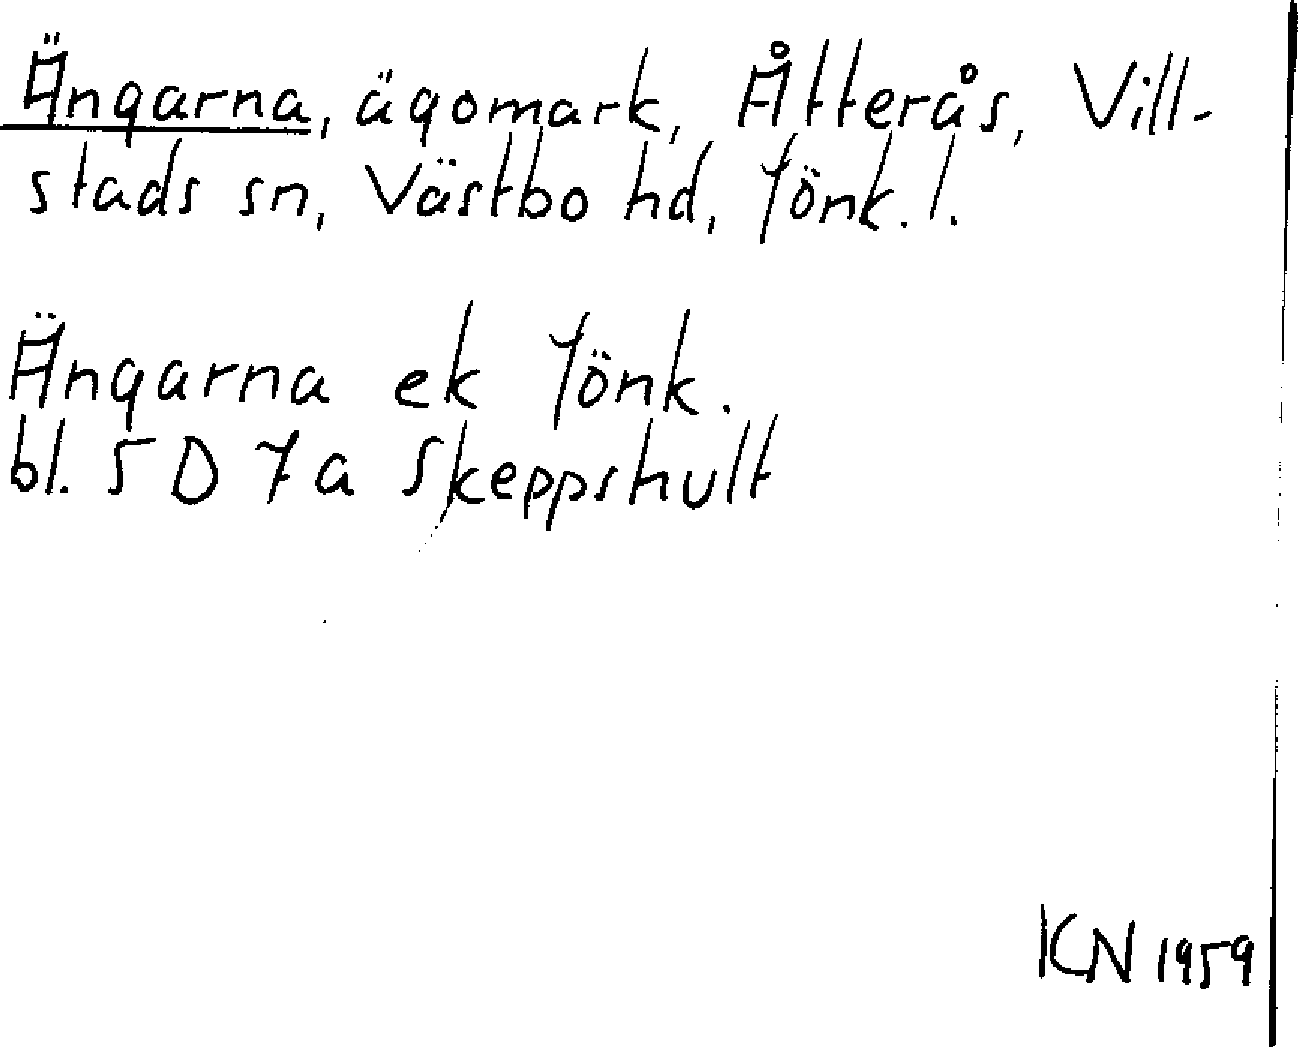 Ängarna, ägomark, Åtterås, Vill-
stads sn, Västbo hd, Jönk. l.
Ängarna ek Jönk.
bl. 5 D 7a Skeppshult
KN 1959